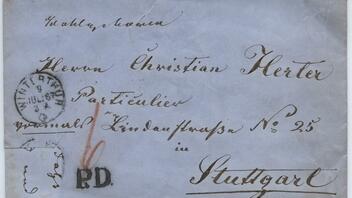 Herrn Christian Herter
Particulier
vormals Lindenstraße No 25
in
Stuttgart
WINTERTHUR
9
JUL. 67
P.D.